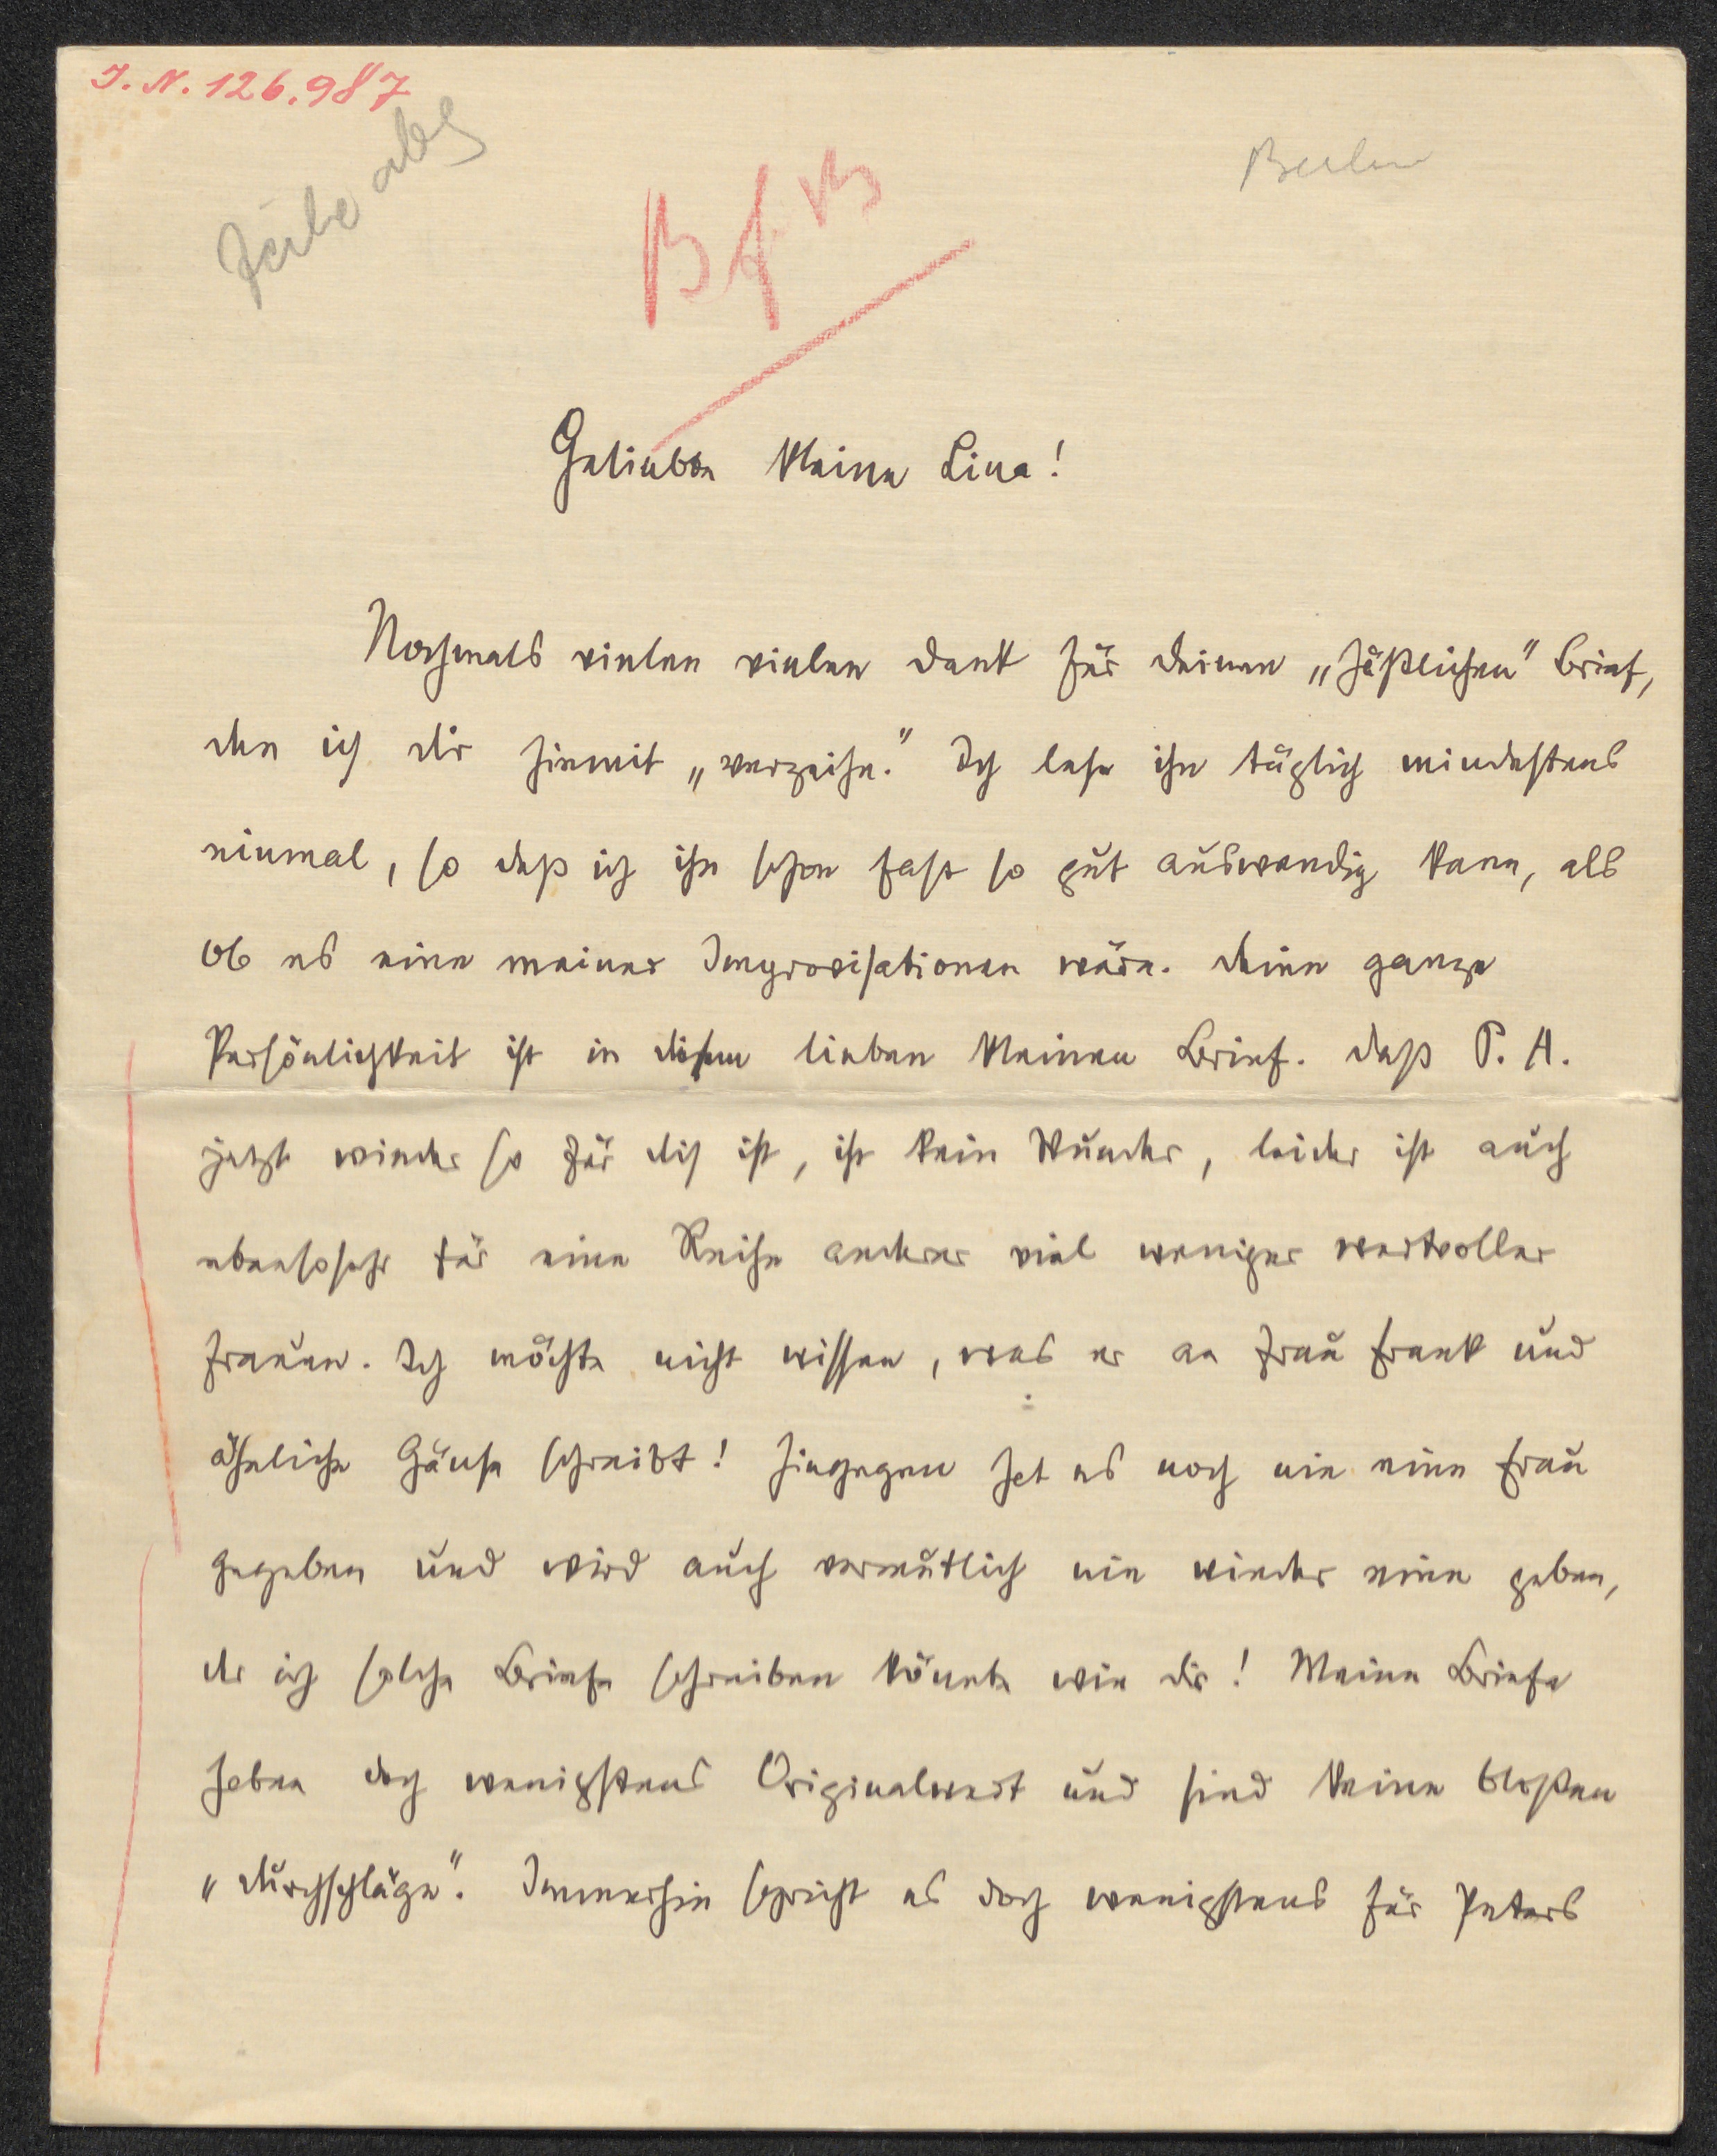 I. N. 126.987
Berlin
Geliebte kleine Lina!
Nochmals vielen vielen Dank für deinen „häßlichen" Brief,
den ich dir hiemit „verzeihe." Ich lese ihn täglich mindestens
einmal, so daß ich ihn schon fast so gut auswendig kann, als
ob es eine meiner Improvisationen wäre. Deine ganze
Persönlichkeit ist in diesem lieben kleinen Brief. Daß P. A.
jetzt wieder so für dich ist, ist kein Wunder, leider ist auch
ebensosehr für eine Reihe anderer viel weniger wertvoller
Frauen. Ich möchte nicht wissen, was er an Frau Frank und
ähnliche Gänse schreibt! Hingegen hat es noch nie eine Frau
gegeben und wird auch vermutlich nie wieder eine geben,
der ich solche Briefe schreiben könnte wie dir! Meine Briefe
haben doch wenigstens Originalwert und sind keine bloßen
„Durchschläge". Immerhin spricht es doch wenigstens für Peters